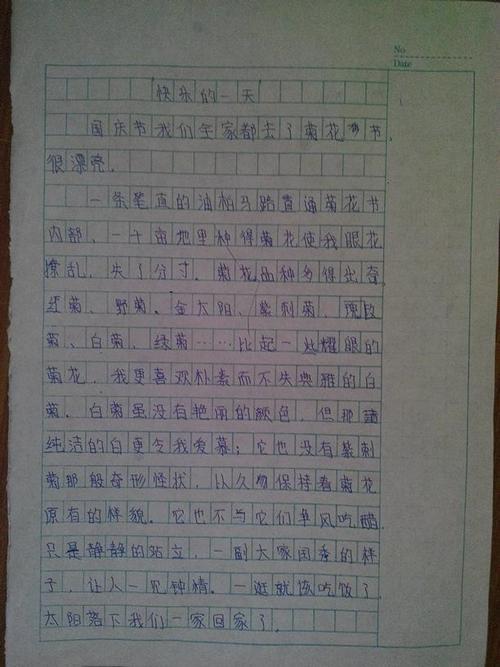 No
Date
快乐的一天
国庆节我们全家都去了菊花节,
很漂亮。
一条笔直的油柏马路直通菊花节
内部,一十亩地里种得菊花使我眼花
撩乱,失了分寸。菊花品种多得出奇
红菊、野菊。金太阳、紫刺菊、瑰玫
菊、白菊、绿菊……比起一些耀眼的
菊花,我更喜欢朴素而不失典雅的白
菊。白菊虽没有艳丽的颜色,但那
纯洁的白更令我爱慕;它也没有紫刺
菊那般奇形怪状,以久勿保持着菊花
原有的样貌。它也不与它们争风吃醋
只是静静的站立,一副大家闺秀的样
子,让人一见钟情。一逛就该吃饭了
太阳落下我们一家回家了。